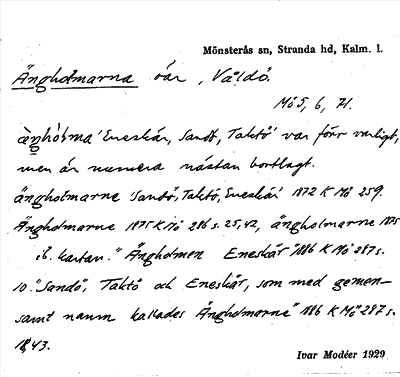 Mönsterås sn, Stranda hd, Kalm. l.
Ängholmarna öar, Våldö.
Mö 5, 6, 71.
ängholma 'Eneskär, Sandö, Taktö' var förr vanligt,
men är numera nästan bortlagt.
ängholmarne 'Sandö, Taktö, Eneskär' 1872 K Mö 259.
Ängholmarne 1875 K Mö 286 s. 25, 42, ängholmarne 1875
ib. kartan. "Ängholmen Eneskär" 1886 K Mö 287 s.
10. "Sandö", Taktö och Eneskär, som med gemen-
samt namn kallades Ängholmarne" 1886 K Mö 287 s.
43.
Ivar Modéer 1929